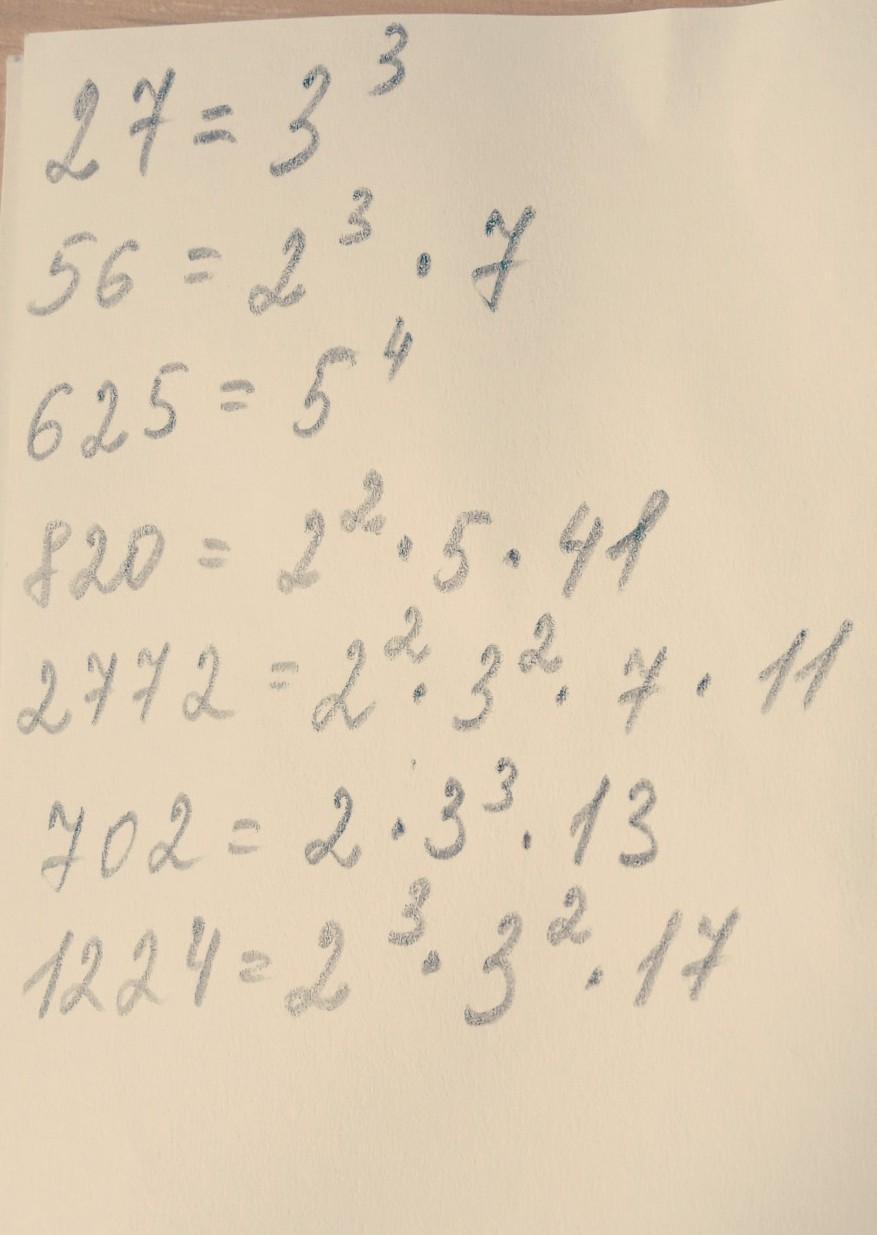 27 = 3³
56 = 2³ · 7
625 = 5⁴
820 = 2² · 5 · 41
2772 = 2² · 3² · 7 · 11
702 = 2 · 3³ · 13
1224 = 2³ · 3² · 17